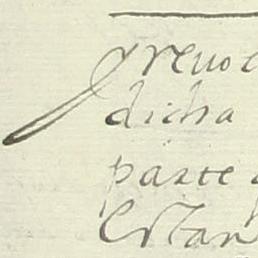 y revo
dicha
parte
Estan